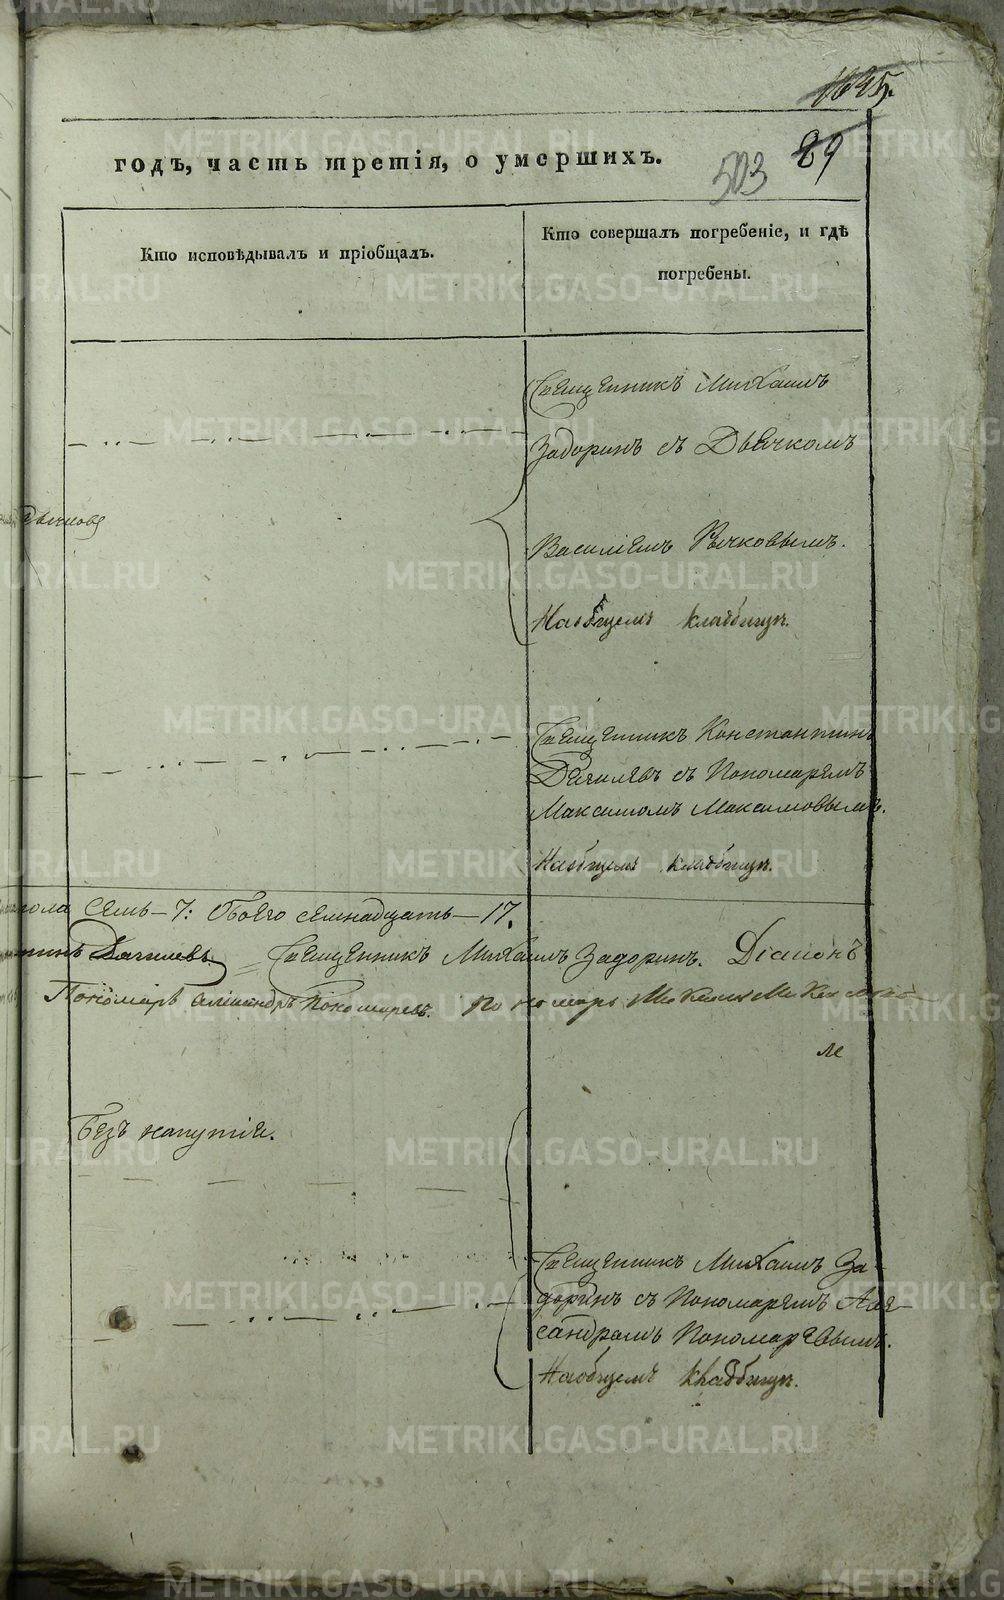 1645.
29
503
годъ, часть третія, о умершихъ.
Кто исповѣдывалъ и пріобщалъ.
Кто совершалъ погребеніе, и гдѣ
погребены.
Священникъ Михаилъ
Задоринъ съ Дьячкомъ
Василіемъ Рычковымъ.
На общемъ кладбищѣ.
Священникъ Константинъ
съ Пономаремъ
Максимомъ Максимовымъ.
На общемъ кладбищѣ.
пола семь-7: Обоего семнадцать-17.
Священникъ Михаилъ Задоринъ. Діаконъ
Пономарь Александръ Пономаревъ. Пономарь
Безъ напутія.
Священникъ Михаилъ За-
доринъ съ Пономаремъ Але-
сандромъ Пономаревымъ.
На общемъ кладбищѣ.
METRIKI.GASO-URAL.RU